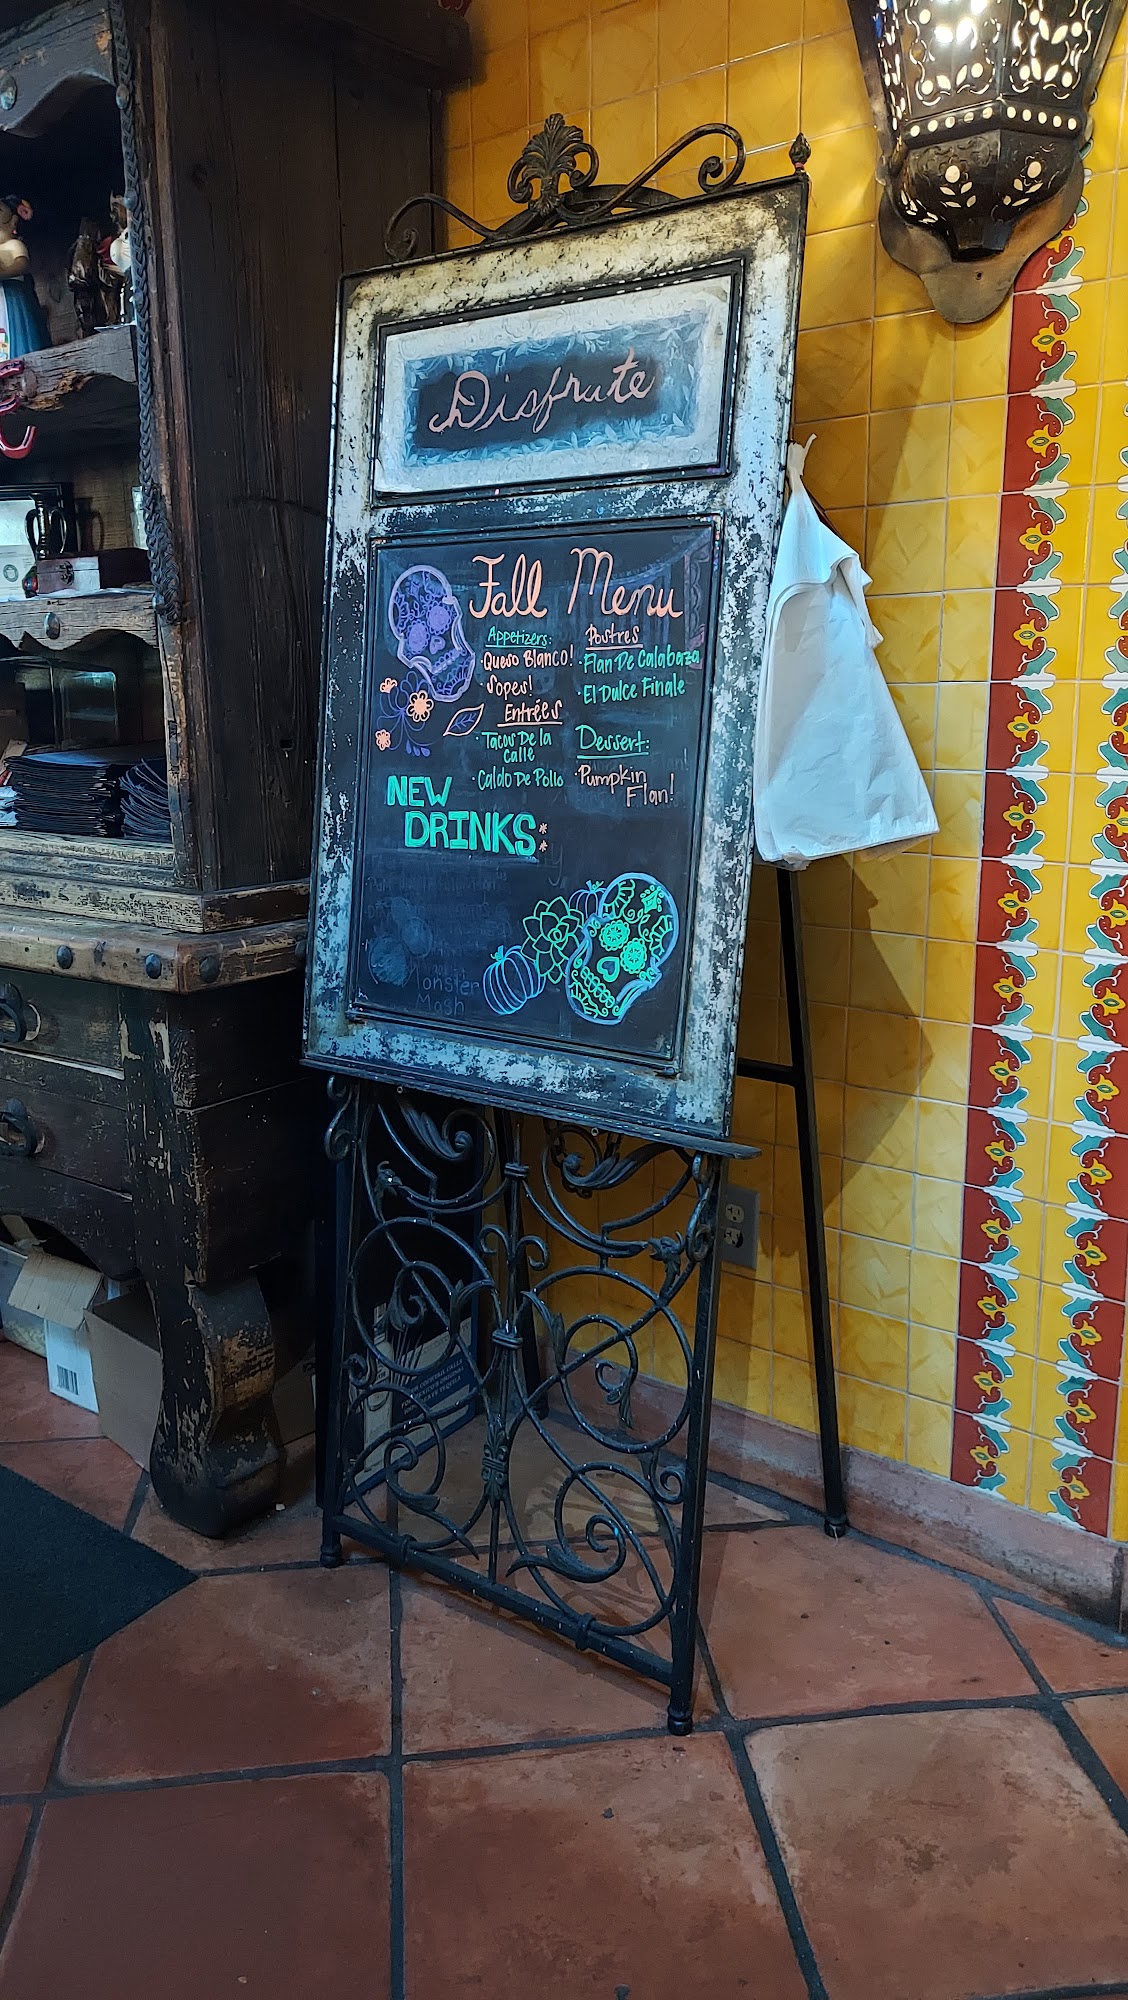 Disfrute
Fall Menu
Appetizers:
·Queso Blanco!
·Sopes!
Entrées
·Tacos De la
Calle
·Caldo De Pollo
Postres
·Flan De Calabaza
·El Dulce Finale
Dessert:
·Pumpkin
Flan!
NEW
DRINKS:
Monster
Mash